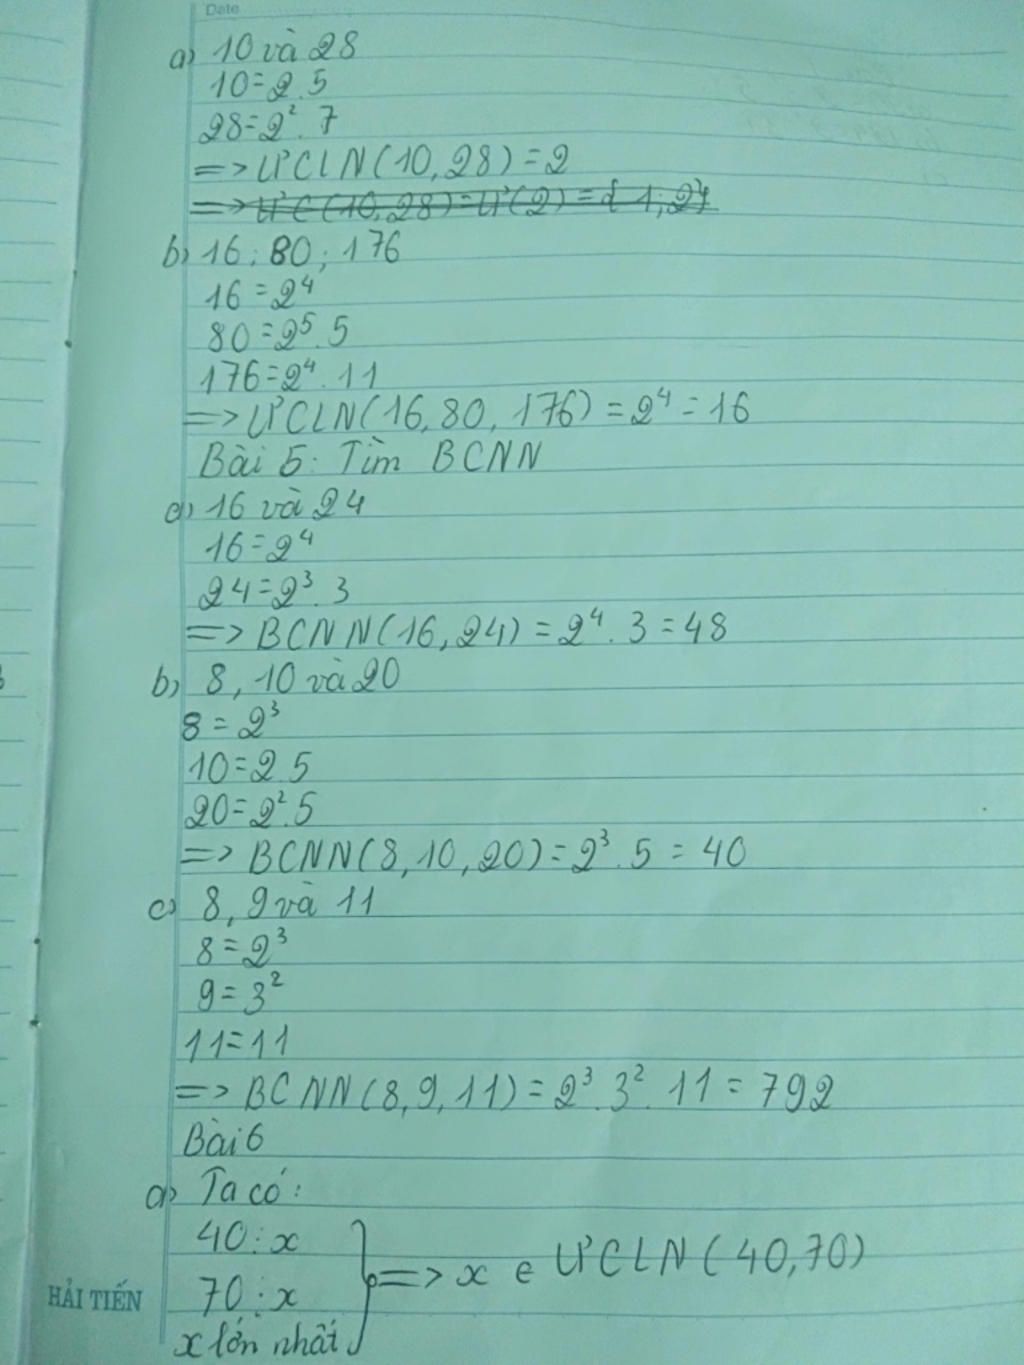 Date
a) 10 và 28
10 = 2.5
28 = 2². 7
=> ƯCLN(10,28) = 2
=> ƯC(10,28) = Ư(2) = {1; 2}
b) 16; 80; 176
16 = 2⁴
80 = 2⁵.5
176 = 2⁴. 11
=> ƯCLN(16,80,176) = 2⁴ = 16
Bài 5: Tìm BCNN
a) 16 và 24
16 = 2⁴
24 = 2³.3
=> BCNN(16,24) = 2⁴. 3 = 48
b) 8, 10 và 20
8 = 2³
10 = 2.5
20 = 2².5
=> BCNN(8,10,20) = 2³.5 = 40
c) 8, 9 và 11
8 = 2³
9 = 3²
11 = 11
=> BCNN(8,9,11) = 2³.3².11 = 792
Bài 6
a) Ta có:
40 ⋮ x
70 ⋮ x
x lớn nhất } => x ∈ ƯCLN(40,70)
HẢI TIẾN